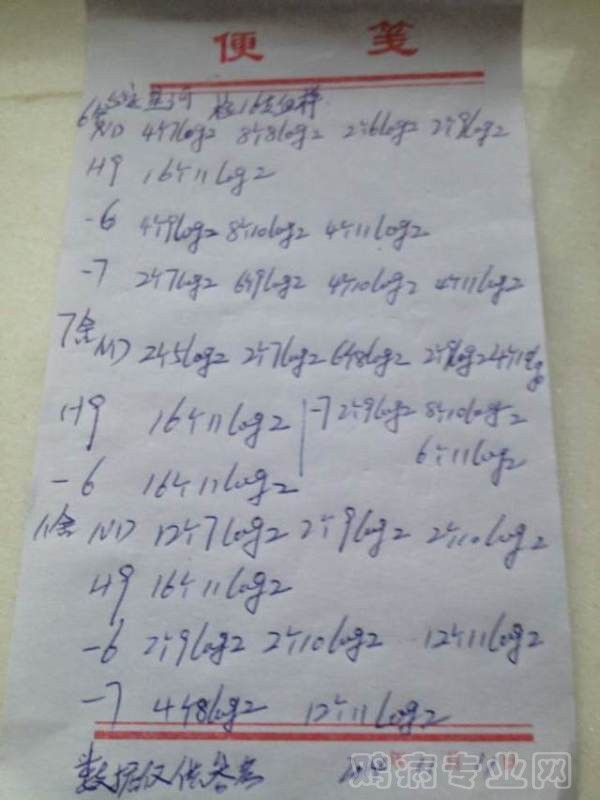 便 笺
6舍 检16支血样
ND 4个7log2 8个8log2 2个6log2 2个9log2
H9 16个11log2
-6 4个9log2 8个10log2 4个11log2
-7 2个7log2 6个9log2 4个10log2 4个11log2
7舍
ND 2个5log2 2个7log2 6个8log2 2个9log2 4个11log2
H9 16个11log2 -7 2个9log2 8个10log2
6个11log2
-6 16个11log2
ND 12个7log2 2个9log2 2个10log2
H9 16个11log2
-6 2个9log2 2个10log2 12个11log2
-7 4个8log2 12个11log2
数据仅供参考
鸡病专业网